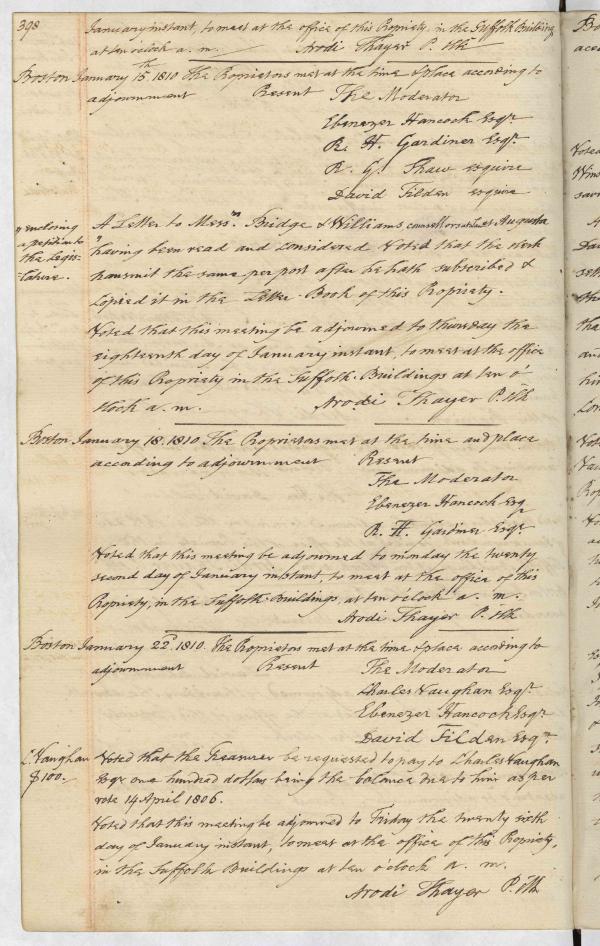 398
January instant, to meet at the office of this Propriety, in the Suffolk Building
at ten oclock a. m. Arodi Thayer P. Clk
Boston January 15th. 1810 The Proprietors met at the time & place according to
adjournment Present The Moderator
Ebenezer Hancock Esqr.
R. H. Gardiner Esqr.
R. G. Shaw esquire
David Tilden esquire
" enclosing
a petition to
the Legis-
lature.
A Letter to Messrs. Bridge & Williams counsellors at law at Augusta
" having been read and considered Voted that the clerk
transmit the same per post after he hath subscribed &
copied it in the Letter-Book of this Propriety.
Voted that this meeting be adjourned to thursday the
eighteenth day of January instant, to meet at the office
of this Propriety in the Suffolk-Buildings at ten o'
clock a. m. Arodi Thayer P. Clk
Boston January 18. 1810 The Proprietors met at the time and place
according to adjournment Present
The Moderator
Ebenezer Hancock Esq
R. H. Gardiner Esqr.
Voted that this meeting be adjourned to monday the twenty
second day of January instant, to meet at the office of this
Propriety, in the Suffolk-Buildings, at ten o'clock a. m.
Arodi Thayer P. Clk
Boston January 22d. 1810. The Proprietors met at the time & place according to
adjournment Present The Moderator
Charles Vaughan Esqr.
Ebenezer Hancock Esqr.
David Tilden Esqr.
C. Vaughan
$100.
Voted that the Treasurer be requested to pay to Charles Vaughan
Esqr one hundred dollars being the balance due to him as per
vote 14 April 1806.
Voted that this meeting be adjourned to Friday the twenty sixth
day of January instant, to meet at the office of this Propriety,
in the Suffolk Buildings at ten o'clock a. m.
Arodi Thayer P. Clk